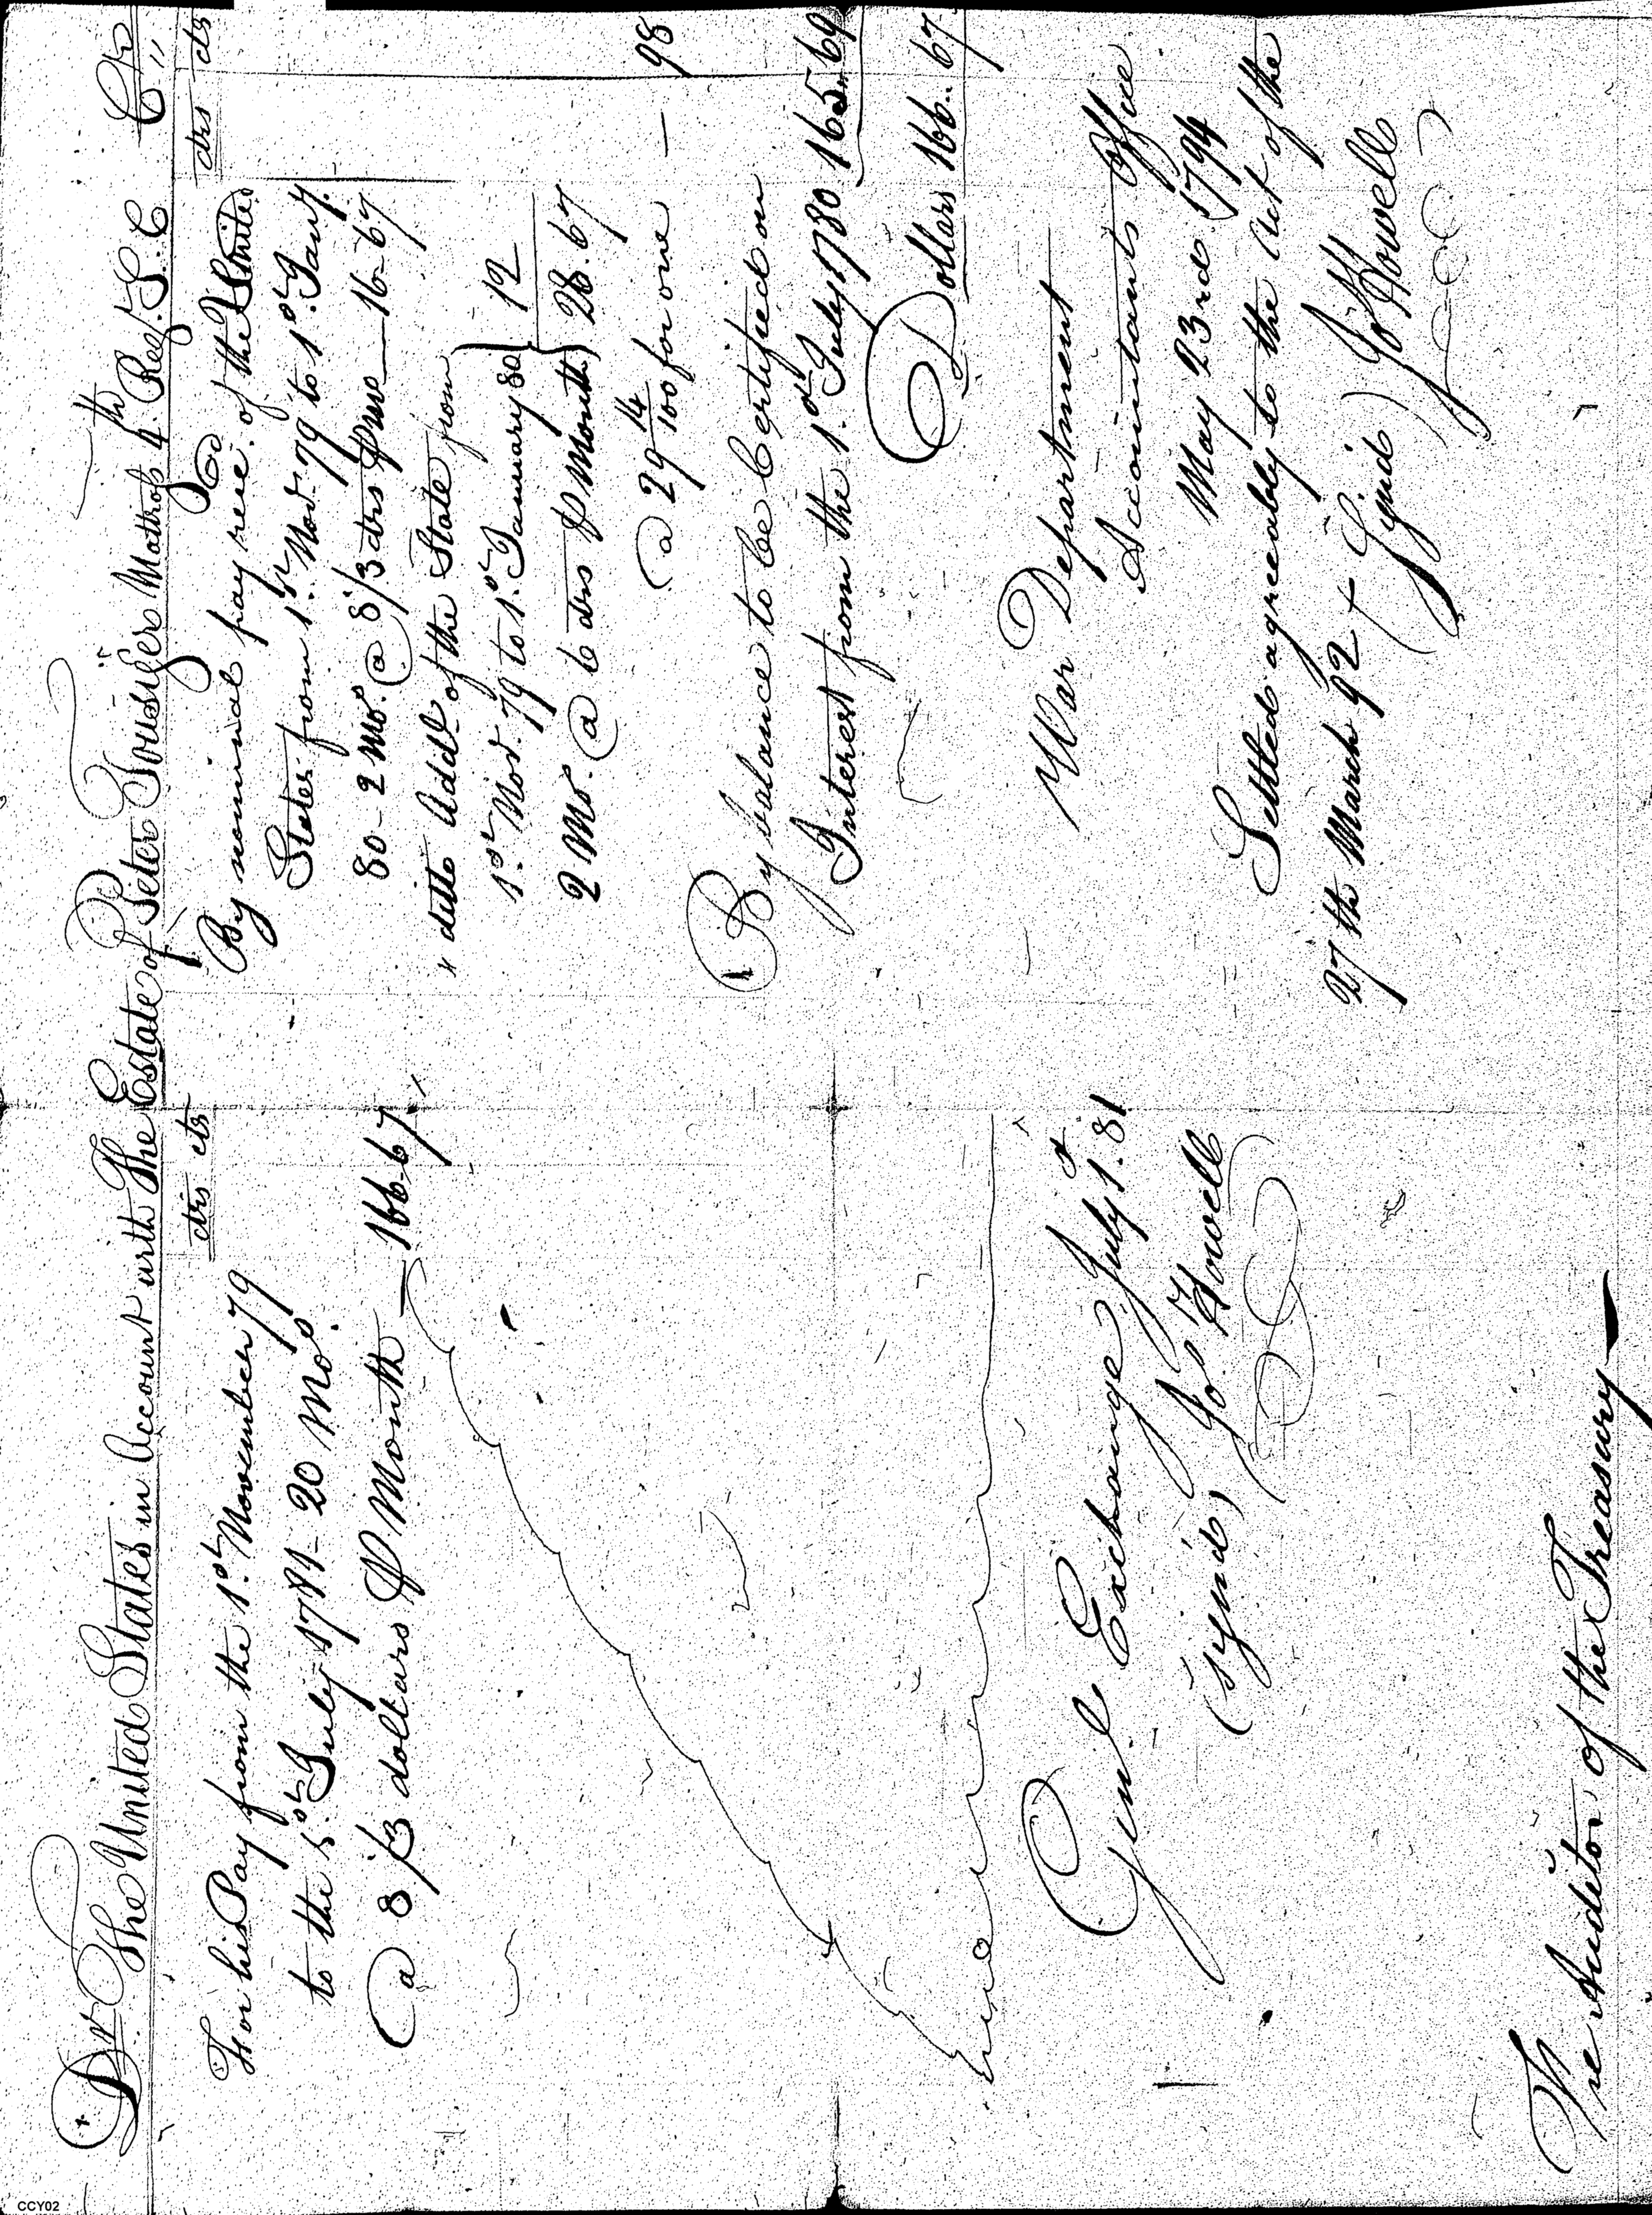 Dr. The United States in Account with The Estate of Peter Mattross 4th Regt. S. C Cr
drs cts
For his Pay from the 1st November 79
to the 1st July 1781 - 20 Mos.
@ 8 1/3 dollars ⅌ Month — 166.67
Exchange July 1st 81
(sign'd) Jo. Howell
The Auditor of the Treasury
drs cts
By nominal pay rece'd of the United
States from 1st Novr. 79 to 1st Jany.
80 - 2 Mos. @ 8 1/3 drs ⅌ mo — 16-67
" ditto Addl. of the State from
1st Novr. 79 to 1st January 80 } 12
2 Mos. @ 6 drs ⅌ Month } 28.67
@ 29 14/100 for one — 98
By balance to be Certified on
Interest from the 1st July 1780 165.69
Dollars 166.. 67
War Department
Accountants Office
May 23rd 1794
Settled agreeably to the Act of the
27th March 92
(Signd) Jo Howell
CCY02